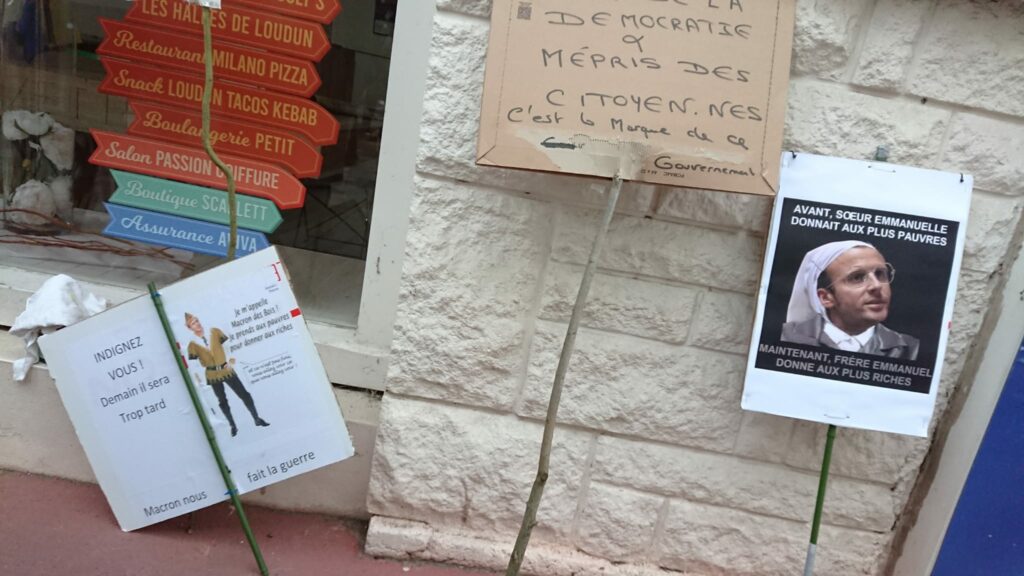 LES HALLES DE LOUDUN
Restaurant MILANO PIZZA
Snack LOUDUN TACOS KEBAB
Boulangerie PETIT
Salon PASSION COIFFURE
Boutique SCARLETT
Assurance AVIVA
INDIGNEZ
VOUS !
Demain il sera
Trop tard
Je m'appelle
Macron des Bois !
Je prends aux pauvres
pour donner aux riches
Macron nous fait la guerre
LA
DEMOCRATIE
&
MÉPRIS DES
CITOYEN.NES
C'est la Marque de ce
Gouvernement
AVANT, SŒUR EMMANUELLE
DONNAIT AUX PLUS PAUVRES
MAINTENANT, FRÈRE EMMANUEL
DONNE AUX PLUS RICHES